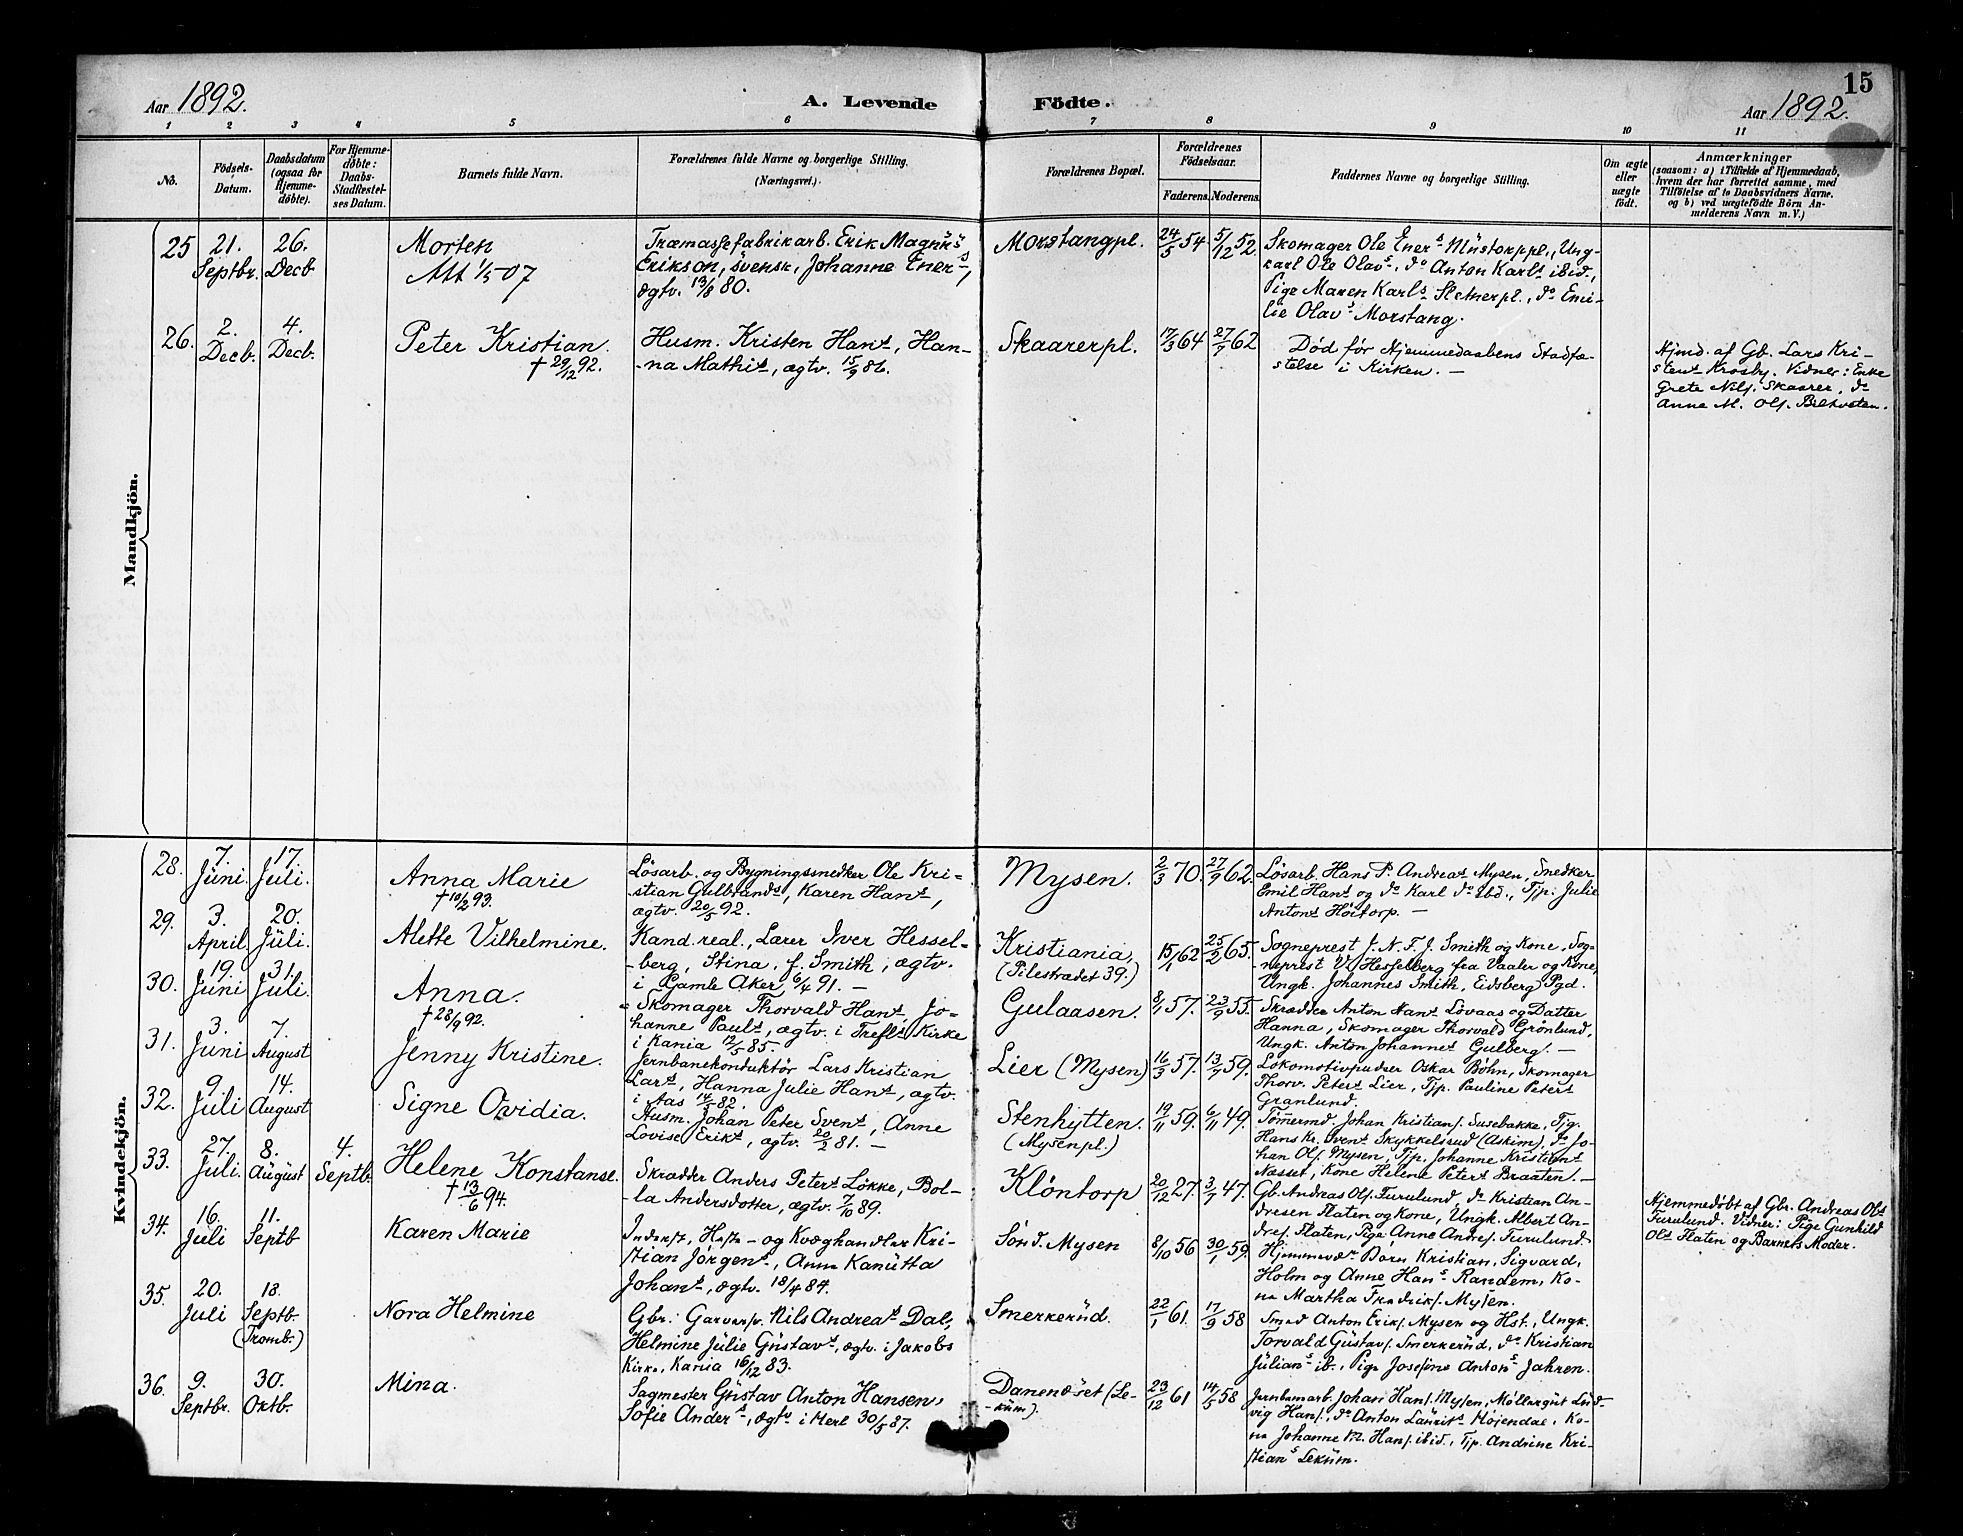 15
Aar 1892.
A. Levende Födte.
Aar 1892.
1 2 3 4 5 6 7 8 9 10 11
No.
Födsels-
Datum.
Daabsdatum
(ogsaa for
Hjemme-
døbte).
For Hjemme-
døbte:
Daabs-
Stadfæstel-
ses Datum.
Barnets fulde Navn.
Forældrenes fulde Navne og borgerlige Stilling.
(Næringsvei.)
Forældrenes Bopæl.
Forældrenes
Födselsaar.
Faderens. Moderens.
Faddernes Navne og borgerlige Stilling.
Om ægte
eller
uægte
født.
Anmærkninger
(saasom: a) i Tilfælde af Hjemmedaab,
hvem der har forrettet samme, med
Tilföielse af to Daabsvidners Navne,
og b) ved uægtefödte Börn An-
melderens Navn m. V.)
Mandkjön.
25
21.
Septbr.
26.
Decb.
Morten
Att 1/5 07
Træmassefabrikarb. Erik Magnus
Erikson, svensk, Johanne Eners,
ægtv. 13/8 80.
Morstangpl.
24/5 54
5/12 52.
Skomager Ole Eners Mustorppl., Ung-
karl Ole Olavs, do Anton Karls ibid.,
Pige Maren Karls Sletnerpl., do Emi-
lie Olavs Morstang.
26.
2.
Decb.
4.
Decb.
Peter Kristian.
† 29/12 92.
Husm. Kristen Hans, Han-
-na Mathis, ægtv. 15/9 86.
Skaarerpl.
17/3 64
27/7 62
Död før Hjemmedaabens Stadfæ-
stelse i Kirken. —
Hjmd. af Gb. Lars Kri-
stens Krosby. Vidner: Enke
Grete Nils. Skaarer, do
Anne M. Ols.
Kvindekjön.
28.
7.
Juni.
17.
Juli.
Anna Marie
† 10/2 93.
Lösarb. og Bygningssnedker Ole Kri-
-stian Gulbrands, Karen Hans,
ægtv. 20/5 92.
Mysen.
2/3 70.
27/9 62.
Løsarb. Hans P. Andreas Mysen, Snedker
Emil Hans og do Karl do ibd., Tjp. Julie
Antons Höitorp. —
29.
3.
April.
20.
Juli.
Alette Vilhelmine.
Kand. real., Lærer Iver Hessel-
-berg, Stina, f. Smith, ægtv.
i Gamle Aker 6/4 91. —
Kristiania,
(Pilestrædet 39.)
15/1 62
25/2 65.
Sogneprest J. N. F. J. Smith og Kone, Sog-
neprest V. Hesselberg fra Vaaler og Kone,
Ungk. Johannes Smith, Eidsberg Pgd.
30.
19.
Juni
31.
Juli.
Anna.
† 28/9 92.
Skomager Thorvald Hans, Jo-
hanne Pauls, ægtv. i Trefls Kirke
i Kania 12/5 85.
Gulaasen.
8/1 57.
23/9 55.
Skrædder Anton Hans Lövaas og Datter
Hanna, Skomager Thorvald Grönlund,
Ungk. Anton Johannes Gulberg. —
31.
3.
Juni
7.
August
Jenny Kristine.
Jernbanekonduktör Lars Kristian
Lars, Hanna Julie Hans, ægtv.
i Aas 14/7 82.
Lier (Mysen)
16/3 57.
13/7 59.
Lokomotivpudser Oskar Böhn, Skomager
Thorv. Peters Lier, Tjp. Pauline Peters
Granlund.
32.
9.
Juli
14.
August
Signe Ovidia.
Husm. Johan Peter Svens, Anne
Lovise Eriks, ægtv. 20/2 81. —
Stenhytten.
(Mysenpl.)
19/11 59.
6/11 49.
Tømermd. Johan Kristians. Susebakke, Tjg.
Hans Kr. Svens Skykkelsrud (Askim), do Jo-
han Ols. Mysen, Tjp. Johanne Kristians
Næsset, Kone Helene Peters Braaten. —
33.
27.
Juli.
8.
August
4.
Septb.
Helene Konstanse.
† 13/6 94.
Skrædder Anders Peters Løkke, Bol-
-la Andersdotter, ægtv. 7/10 89.
Klöntorp
20/12 27.
3/7 47.
Gb. Andreas Ols. Furulund, do Kristian An-
dresen Flaten og Kone, Ungk. Albert An-
dres. Flaten, Pige Anne Andrs. Furulund.
Hjemmedøbt af Gbr. Andreas Ols
Furulund. Vidner: Pige Gunhild
Ols Flaten og Barnets Moder.
34.
16.
Juli
11.
Septb
Karen Marie
Inderst, Heste- og Kvæghandler Kri-
stian Jörgens, Anna Kanutta
Johans, ægtv. 18/4 84.
Sönd. Mysen
8/10 56
30/1 59
Hjemmevær. Børn, Kristian, Sigvard,
Holm og Anne Hans Randem, Ko-
na Martha Fredriks. Mysen.
35.
20.
Juli
18.
Septb.
(Tromb.)
Nora Helmine
Gbr. Garversv. Nils Andreas Dal,
Helmine Julie Gustavs, ægtv. i Jakobs
Kirke, Kania 16/12 83.
Smerkerud.
22/1 61.
17/9 58
Smed Anton Eriks. Mysen og Hst., Ungk.
Torvald Gustavs. Smerkerud, do Kristian
Julians ib., Pige Josefine Antons Jahren.
36.
9.
Septbr.
30.
Oktb.
Mina.
Sagmester Gustav Anton Hansen,
Sofie Anders, ægtv i Herl 30/5 87.
Danenæset (Le-
-kum).
23/12 61
14/5 58
Jernbanarb. Johan Hans. Mysen, Möllergut Lud-
vig Hans., do Anton Laurits Höjendal, Ko-
na Johanne M. Hans. ibid., Tjp. Andrine Kri-
stians Lekum.